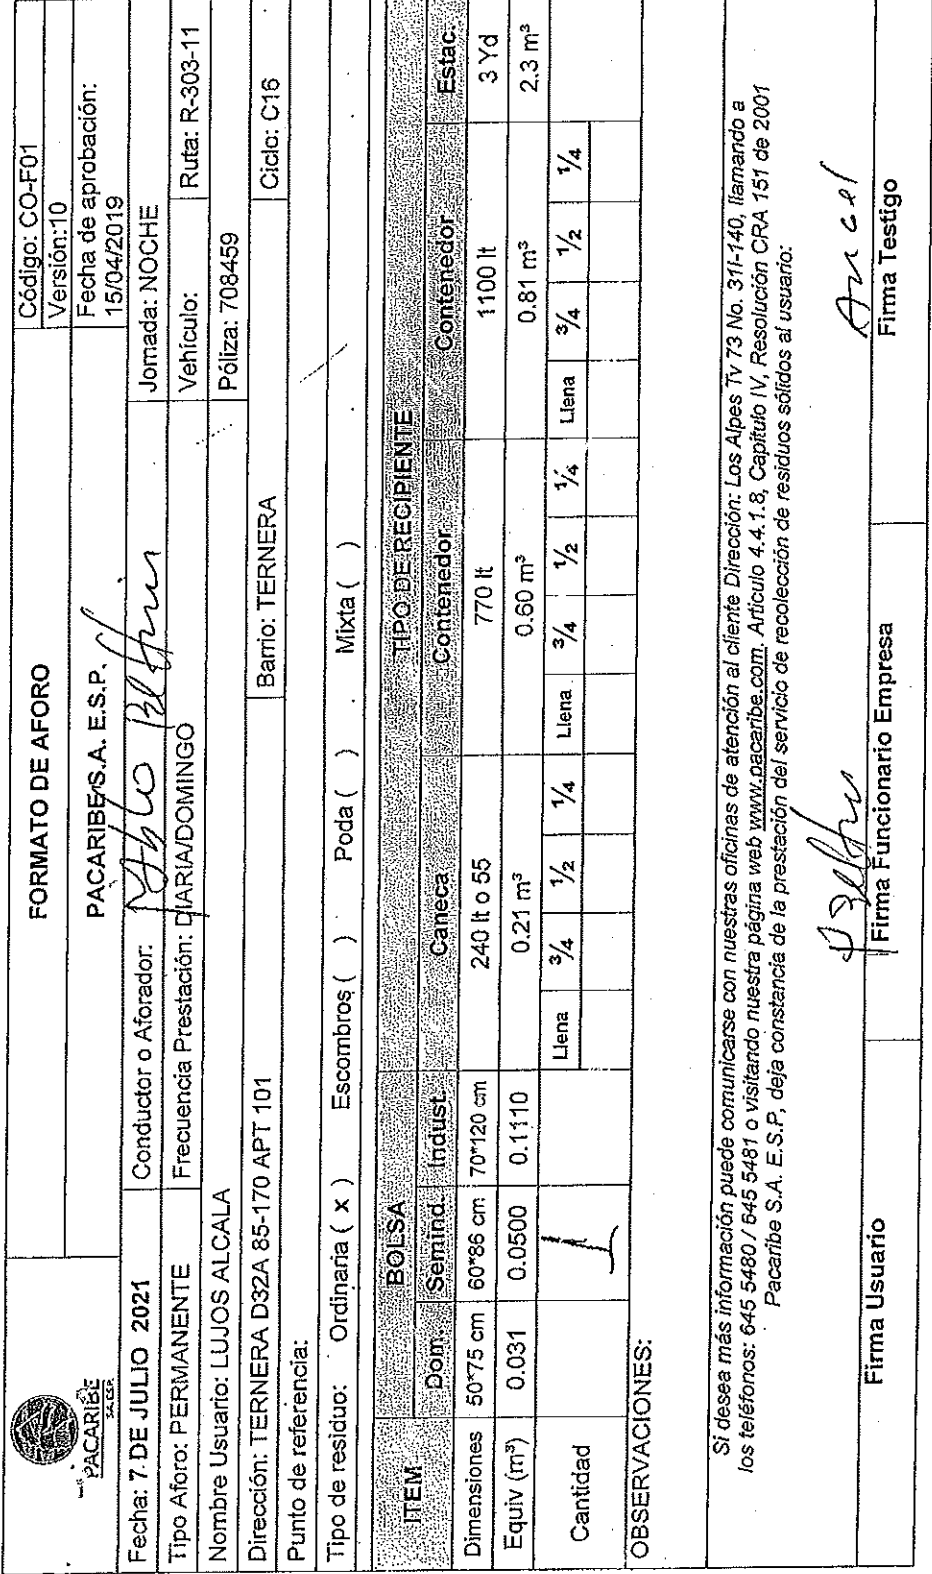 PACARIBE
S.A. E.S.P.
FORMATO DE AFORO
PACARIBE S.A. E.S.P.
Código: CO-F01
Versión:10
Fecha de aprobación:
15/04/2019
Fecha: 7 DE JULIO 2021
Conductor o Aforador: Pablo Beltrán
Jornada: NOCHE
Tipo Aforo: PERMANENTE
Frecuencia Prestación: DIARIA/DOMINGO
Vehículo:
Ruta: R-303-11
Nombre Usuario: LUJOS ALCALA
Póliza: 708459
Dirección: TERNERA D32A 85-170 APT 101
Barrio: TERNERA
Ciclo: C16
Punto de referencia:
Tipo de residuo: Ordinaria ( x ) Escombros ( ) Poda ( ) Mixta ( )
ITEM BOLSA TIPO DE RECIPIENTE
Dom. Semind. Indust. Caneca Contenedor Contenedor Estac.
Dimensiones 50*75 cm 60*86 cm 70*120 cm 240 lt o 55 770 lt 1100 lt 3 Yd
Equiv (m³) 0.031 0.0500 0.1110 0.21 m³ 0.60 m³ 0.81 m³ 2.3 m³
Cantidad 1 Llena 3/4 1/2 1/4 Llena 3/4 1/2 1/4 Llena 3/4 1/2 1/4
OBSERVACIONES:
Si desea más información puede comunicarse con nuestras oficinas de atención al cliente Dirección: Los Alpes Tv 73 No. 31I-140, llamando a
los teléfonos: 645 5480 / 645 5481 o visitando nuestra página web www.pacaribe.com. Artículo 4.4.1.8, Capítulo IV, Resolución CRA 151 de 2001
Pacaribe S.A. E.S.P, deja constancia de la prestación del servicio de recolección de residuos sólidos al usuario:
Firma Usuario
Firma Funcionario Empresa
Firma Testigo